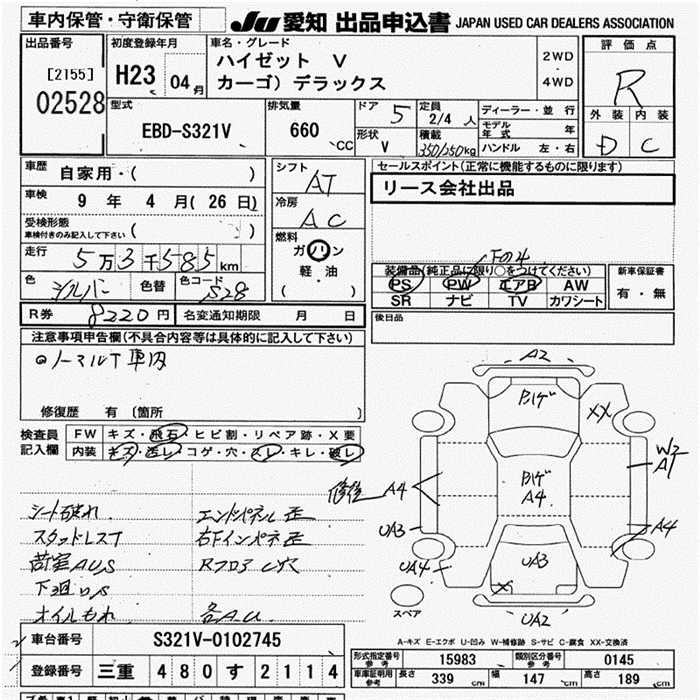 車内保管・守衛保管
JU 愛知 出品申込書 JAPAN USED CAR DEALERS ASSOCIATION
出品番号
[2155]
02528
初度登録年月
H23 04月
車名・グレード
ハイゼット V
カーゴ) デラックス
2WD
・
4WD
評価点
R
外装 内装
D C
型式
EBD-S321V
排気量
660 CC
ドア 5
形状 V
定員 2/4 人
積載 350/250kg
ディーラー・並行
モデル年式 年
ハンドル 左・右
車歴 自家用・( )
車検 9 年 4 月 ( 26 日)
受検形態
車検付きのみ記入して下さい ( )
走行 5万3千585km
色 シルバー 色替 色コード S28
シフト AT
冷房 AC
燃料
ガソリン
軽・油
( )
セールスポイント(正常に機能するものに限ります)
リース会社出品
下の4
装備品(純正品に限り○をつけてください)
PS PW エアB AW
SR ナビ TV カワシート
新車保証書
有・無
後日品
R券 8220円 名変通知期限 月 日
注意事項申告欄(不具合内容等は具体的に記入して下さい)
ノーマルT 車内
修復歴 有 (箇所 )
検査員記入欄
FW キズ・飛石・ヒビ割・リペア跡・X要
内装 キズ・汚レ・コゲ・穴・スレ・キレ・破レ
シート破れ エンドパネル歪
スタッドレスT 右下インパネ歪
荷室AUS Rフロア
下廻りS
オイルもれ 各AU
A2
XX
A4
W2
A1
A4
UA3
A4
UA4
UA3
X
UA2
スペア
A-キズ E-エクボ U-凹み W-補修跡 S-サビ C-腐食 XX-交換済
車台番号 S321V-0102745
登録番号 三重 480 す 2114
形式指定番号 参考 15983 類別区分番号 参考 0145
車庫証明用 参考 長さ 339 cm 幅 147 cm 高さ 189 cm